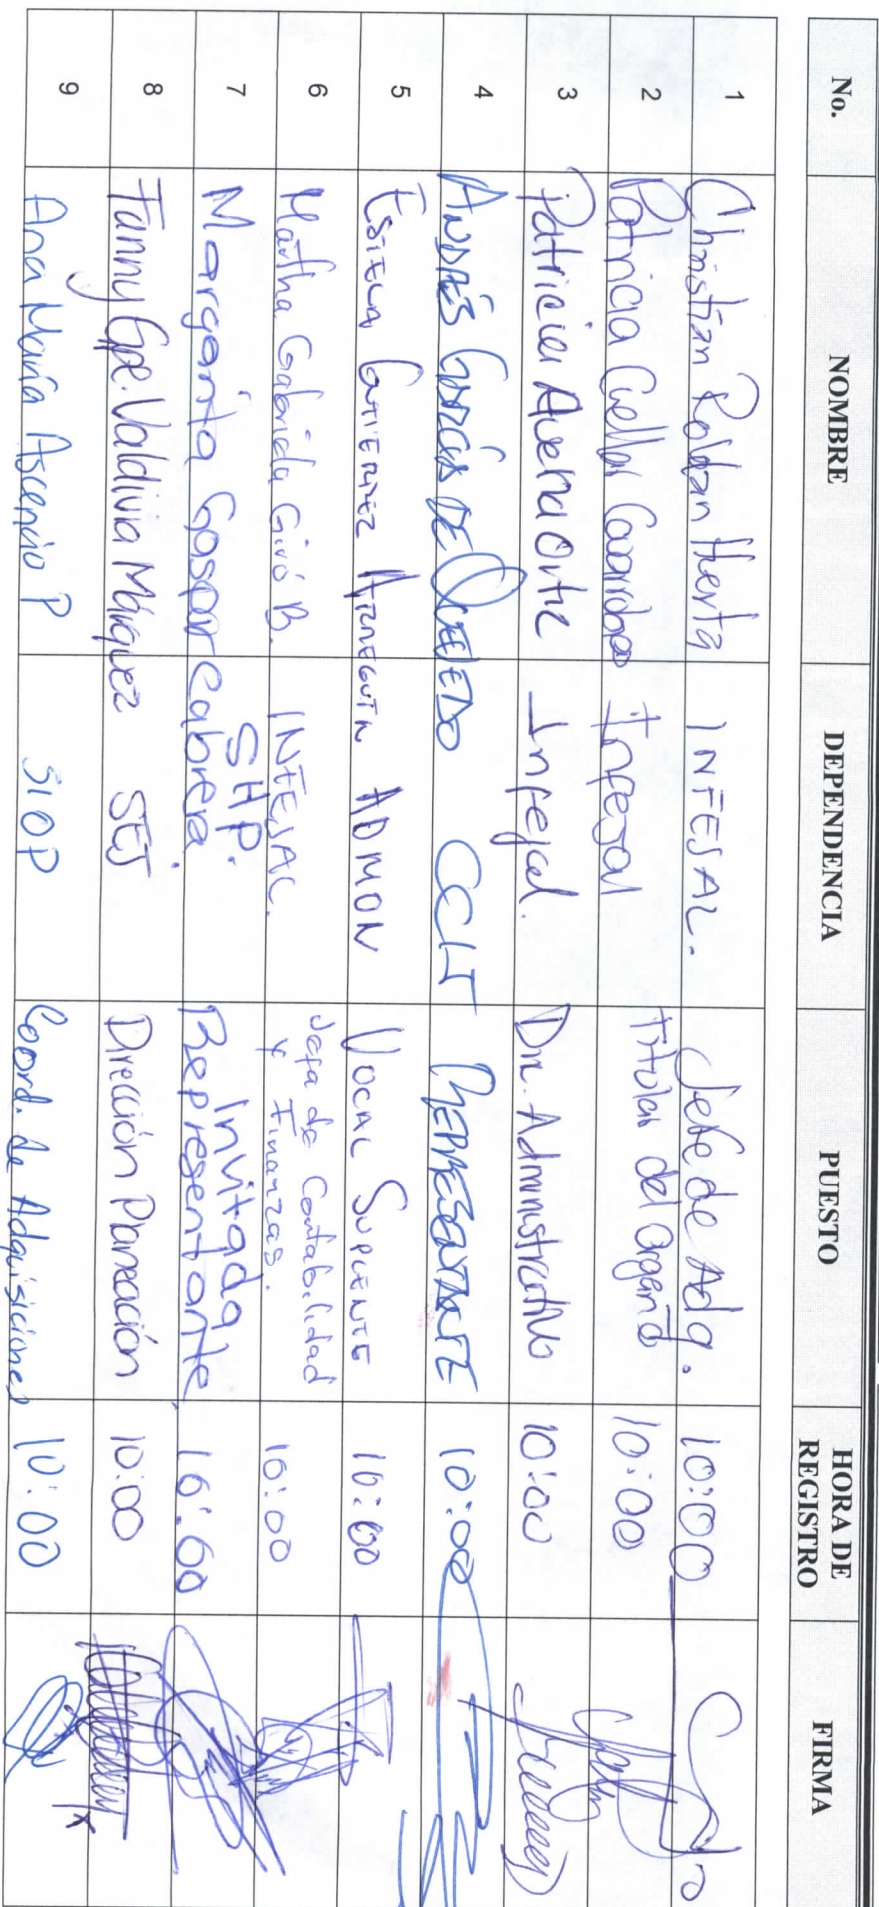 No. NOMBRE DEPENDENCIA PUESTO HORA DE REGISTRO FIRMA
1 Christian Roldan Huerta INFEJAL. Jefe de Adq. 10:00
2 Patricia Cuellar Infejal Titular del Organo 10:00
3 Patricia Ortiz Infejal. Dir. Administrativo 10:00
4 ANDRÉS GARCÍA DE QUEVEDO CCIJ REPRESENTANTE 10:00
5 ESTELA GUTIERREZ ARREGUIN ADMON VOCAL SUPLENTE 10:00
6 Martha Gabriela Giró B. INFEJAL. Jefa de Contabilidad y Finanzas. 10:00
7 Margarita Gaspar Cabrera SHP. Invitada Representante 10:00
8 Fanny Gpe. Valdivia Márquez SEJ Dirección Planeación 10:00
9 Ana María Ascencio P SIOP Coord. de Adquisiciones 10:00